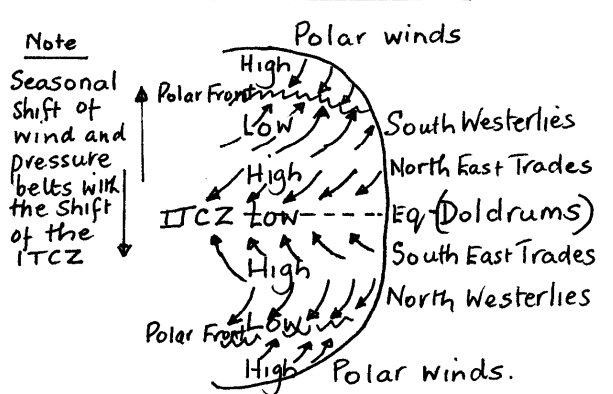 Note
Seasonal
shift of
wind and
pressure
belts with
the shift
of the
ITCZ
Polar winds
High
Polar Front
Low
South Westerlies
High
North East Trades
ITCZ Low
Eq (Doldrums)
South East Trades
High
North Westerlies
Polar Front Low
High
Polar winds.